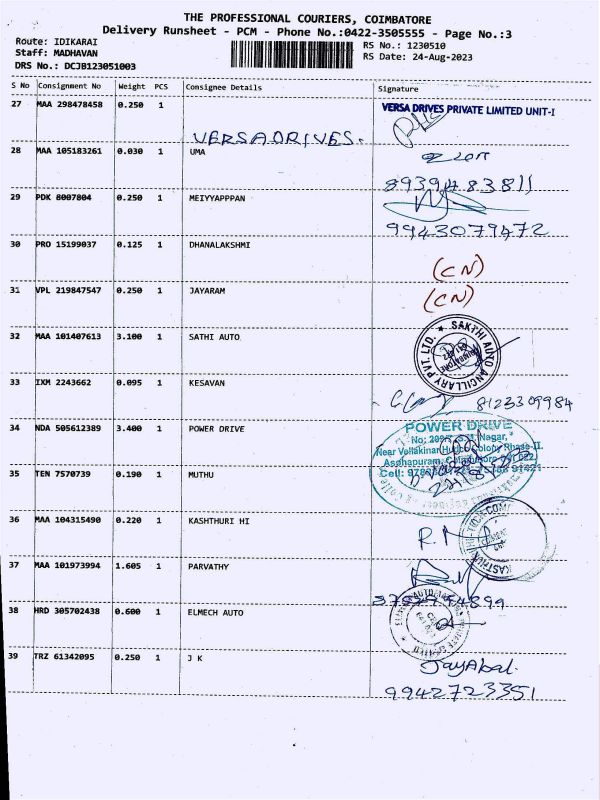 THE PROFESSIONAL COURIERS, COIMBATORE
Delivery Runsheet - PCM - Phone No.:0422-3505555 - Page No.:3
Route: IDIKARAI
RS No.: 1230510
Staff: MADHAVAN
RS Date: 24-Aug-2023
DRS No.: DCJB123051003
S No Consignment No Weight PCS Consignee Details Signature
27 MAA 298478458 0.250 1 VERSA DRIVES PRIVATE LIMITED UNIT-I
VERSADRIVES.
28 MAA 105183261 0.030 1 UMA
8939483811
29 PDK 8007804 0.250 1 MEIYYAPPPAN
9943079472
30 PRO 15199037 0.125 1 DHANALAKSHMI
(CN)
31 VPL 219847547 0.250 1 JAYARAM
(CN)
32 MAA 101407613 3.100 1 SATHI AUTO
SAKTHI AUTO ANCILLARY PVT. LTD.
33 IXM 2243662 0.095 1 KESAVAN
8123309984
34 NDA 505612389 3.400 1 POWER DRIVE
POWER DRIVE
Nagar,
Near Vellakinar Colony Phase-II.
Cell:
35 TEN 7570739 0.190 1 MUTHU
36 MAA 104315490 0.220 1 KASHTHURI HI
37 MAA 101973994 1.605 1 PARVATHY
38 HRD 305702438 0.600 1 ELMECH AUTO
39 TRZ 61342095 0.250 1 J K
Jayabal.
9942723351